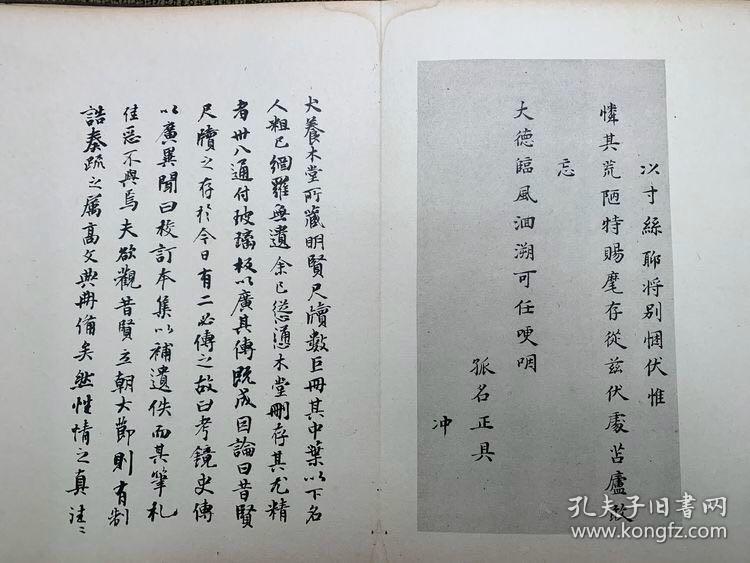 以寸絲聊将别悃伏惟
憐其荒陋特賜麾存從兹伏處苫廬敢
忘
大德臨風洄溯可任哽咽
孤名正具
冲
犬養木堂所蔵明賢尺牘數巨冊其中葉以下名
人粗已網羅無遺余已從慂木堂刪存其尤精
者卅八通付玻璃板以廣其傳既成因論曰昔賢
尺牘之存於今日有二必傳之故曰考鏡史傳
以廣異聞曰校訂本集以補遺佚而其筆札
佳惡不與焉夫欲觀昔賢立朝大節則有制
誥奏疏之属高文典冊備矣然性情之真往〻
孔夫子旧书网
www.kongfz.com